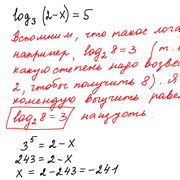 log₃ (2-x) = 5
Вспомним, что такое лога
например, log₂ 8 = 3 (т.
какую степень надо возве
2, чтобы получить 8). Я
комендую выучить раве
log₂ 8 = 3 наизусть
3⁵ = 2 - x
243 = 2 - x
x = 2 - 243 = -241